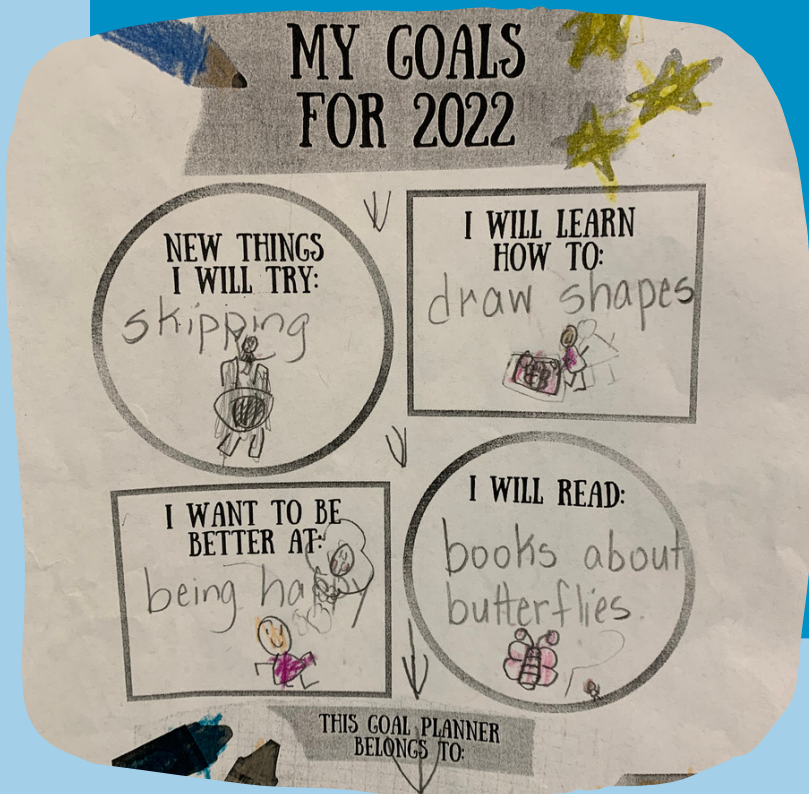 MY GOALS
FOR 2022
NEW THINGS
I WILL TRY:
skipping
I WILL LEARN
HOW TO:
draw shapes
I WANT TO BE
BETTER AT:
being
I WILL READ:
books about
butterflies.
THIS GOAL PLANNER
BELONGS TO: